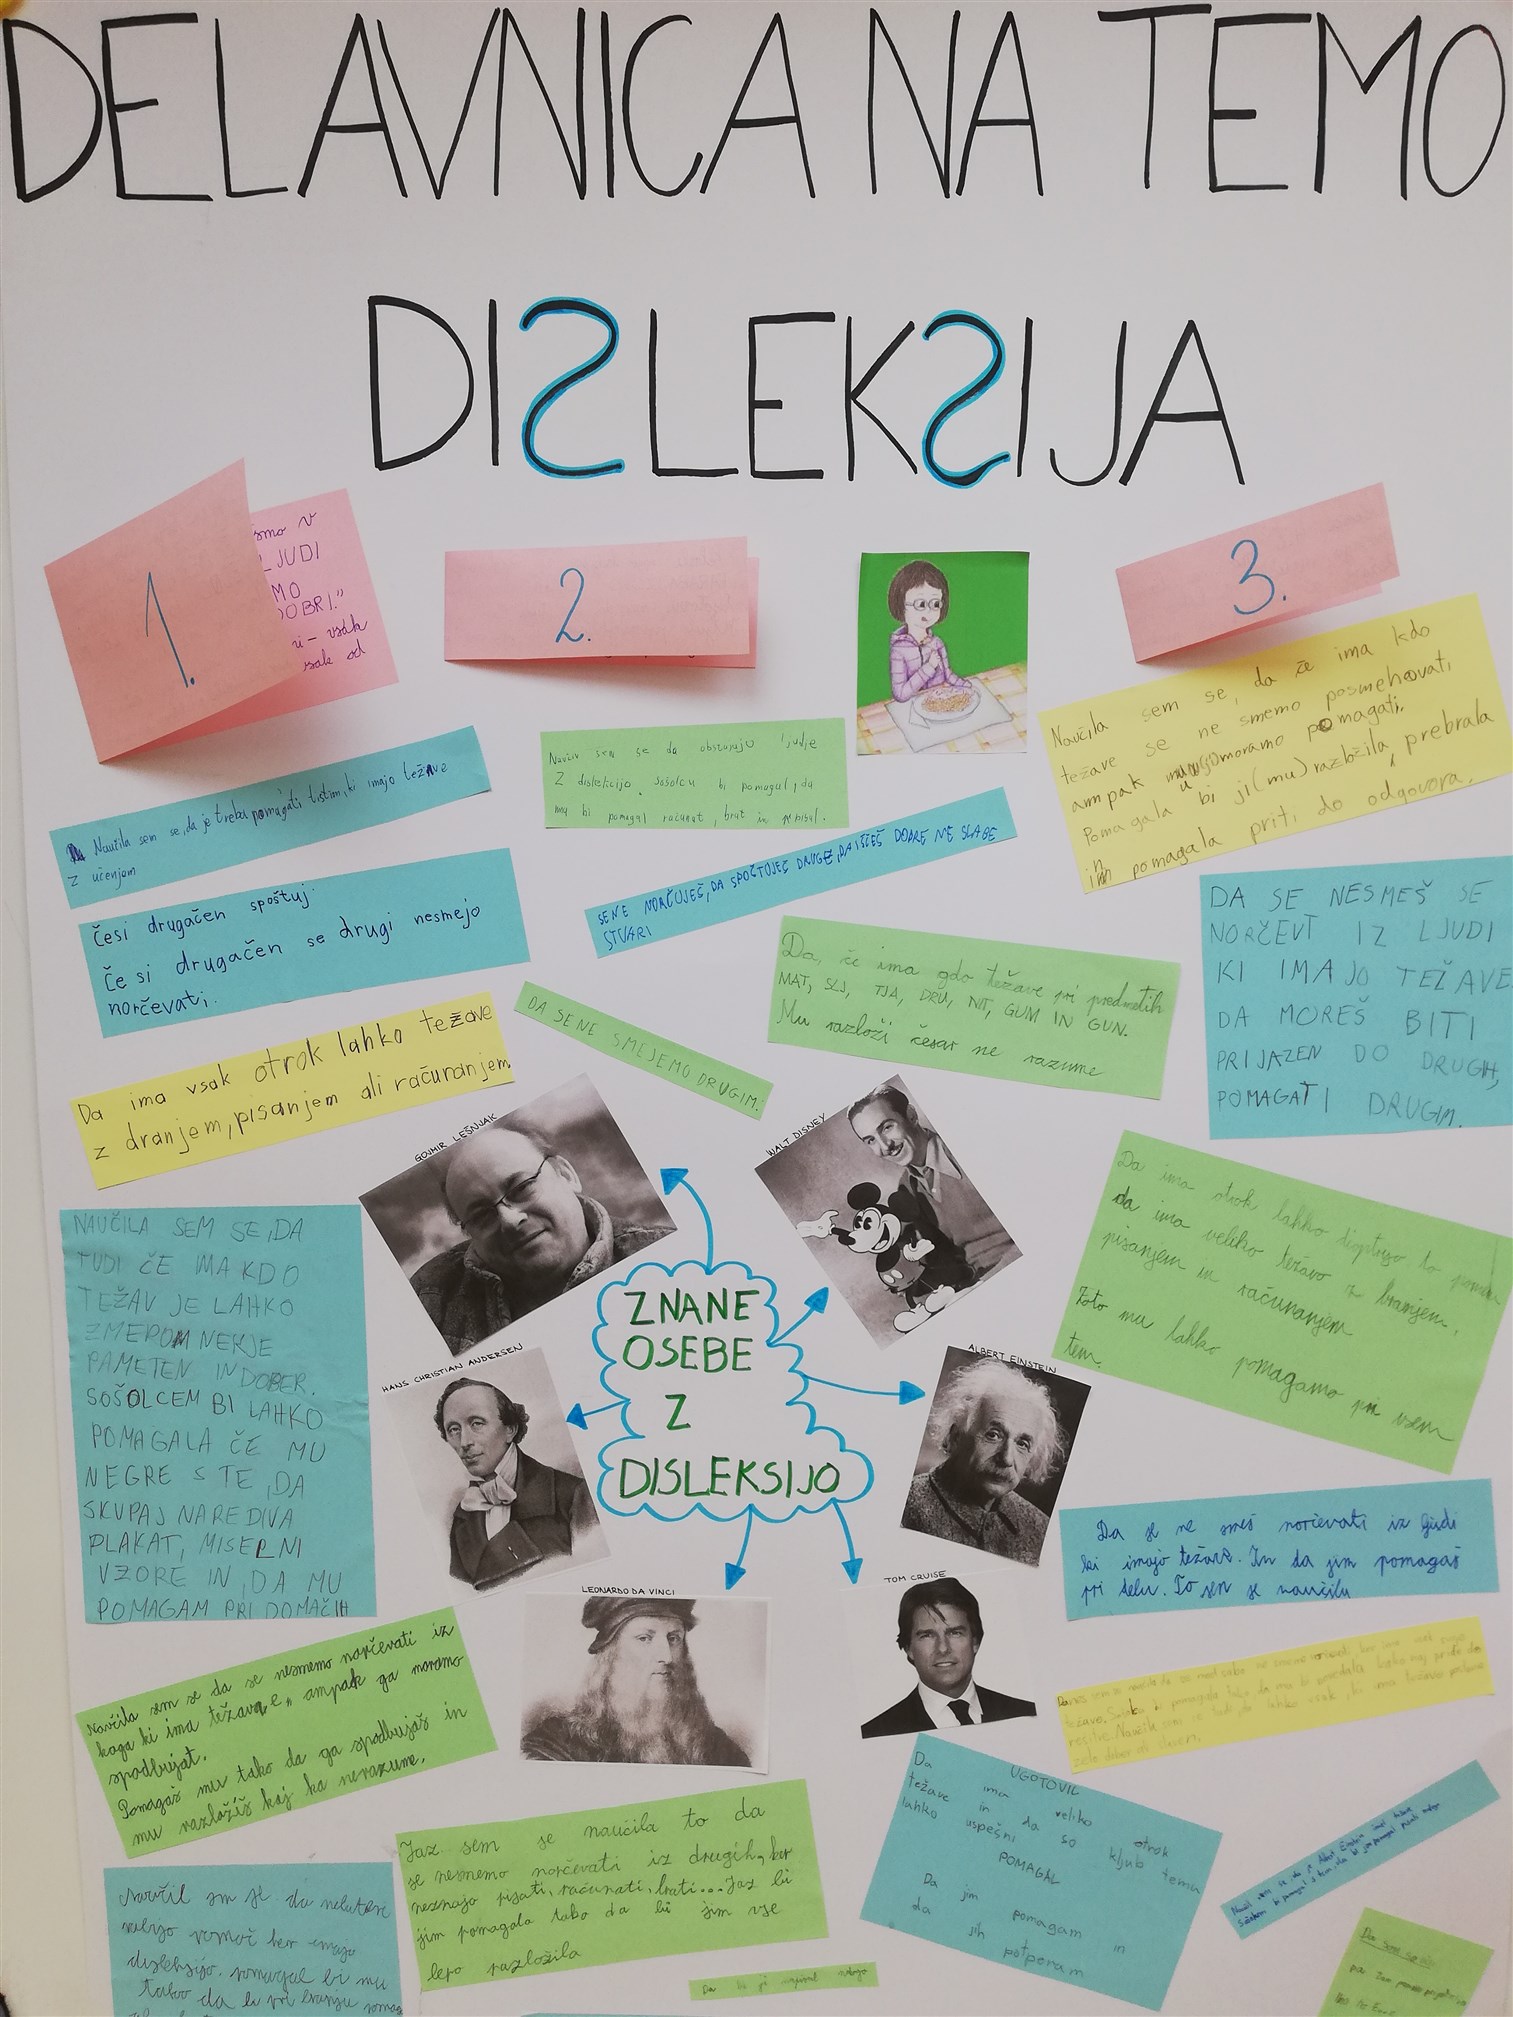 DELAVNICA NA TEMO
DISLEKSIJA
1.
smo v
LJUDI
MO
DOBRI."
ni - vsak
sak od
2.
3.
Naučila sem se, da je treba pomagati tistim, ki imajo težave
z učenjem
Česi drugačen spoštuj.
Če si drugačen se drugi nesmejo
norčevati.
Da ima vsak otrok lahko težave
z dranjem, pisanjem ali računanjem
Naučiv sem se da obstajajo ljudje
Z disleksijo. Sošolcu bi pomagal, da
mu bi pomagal računat, brat in
SENE NORČUJEŠ, DA SPOŠTUJEŠ DRUGE, DA IŠČEŠ DOBRE NE SLABE
STVARI
DA SE NE SMEJEMO DRUGIM.
Naučila sem se, da če ima kdo
težave se ne smemo posmehovati,
ampak moramo pomagati.
Pomagala bi ji (mu) razložila, prebrala
in pomagala priti do odgovora.
Da, če ima gdo težave pri predmetih
MAT, SLJ, TJA, DRU, NIT, GUM IN GUN.
Mu razloži česar ne razume
DA SE NESMEŠ SE
NORČEVT IZ LJUDI
KI IMAJO TEŽAVE
DA MOREŠ BITI
PRIJAZEN DO DRUGIH,
POMAGATI DRUGIM.
Da ima otrok lahko to
da ima veliko težavo z branjem,
pisanjem in računanjem
Zato mu lahko pomagamo pri vsem
tem.
GOJMIR LEŠNJAK
WALT DISNEY
HANS CHRISTIAN ANDERSEN
ALBERT EINSTEIN
ZNANE
OSEBE
Z
DISLEKSIJO
LEONARDO DA VINCI
TOM CRUISE
NAUČILA SEM SE, DA
TUDI ČE IMA KDO
TEŽAV JE LAHKO
ZMEROM NEKJE
PAMETEN IN DOBER.
SOŠOLCEM BI LAHKO
POMAGALA ČE MU
NEGRE S TE, DA
SKUPAJ NAREDIVA
PLAKAT, MISELNI
VZORE IN, DA MU
POMAGAM PRI DOMAČIH
Da se ne smeš norčevati iz ljudi
ki imajo težave. In da jim pomagaš
pri delu. To sen se naučila
Naučila sem se da se nesmemo norčevati iz
koga ki ima težave, ampak ga moramo
spodbujat.
Pomagaš mu tako da ga spodbujaš in
mu razložiš kaj ka nerazume.
Jaz sem se naučila to da
se nesmemo norčevati iz drugih, ker
neznajo pisati, računati, brati... Jaz bi
jim pomagala tako da bi jim vse
lepo razložila
UGOTOVIL
Da ima veliko otrok
težave in da so kljub temu
lahko uspešni
POMAGAL
Da jim pomagam in
da jih potperam
Naučil sm se da nekatere
rabijo pomoč ker imajo
disleksijo. pomagal bi mu
tako da bi pri branju